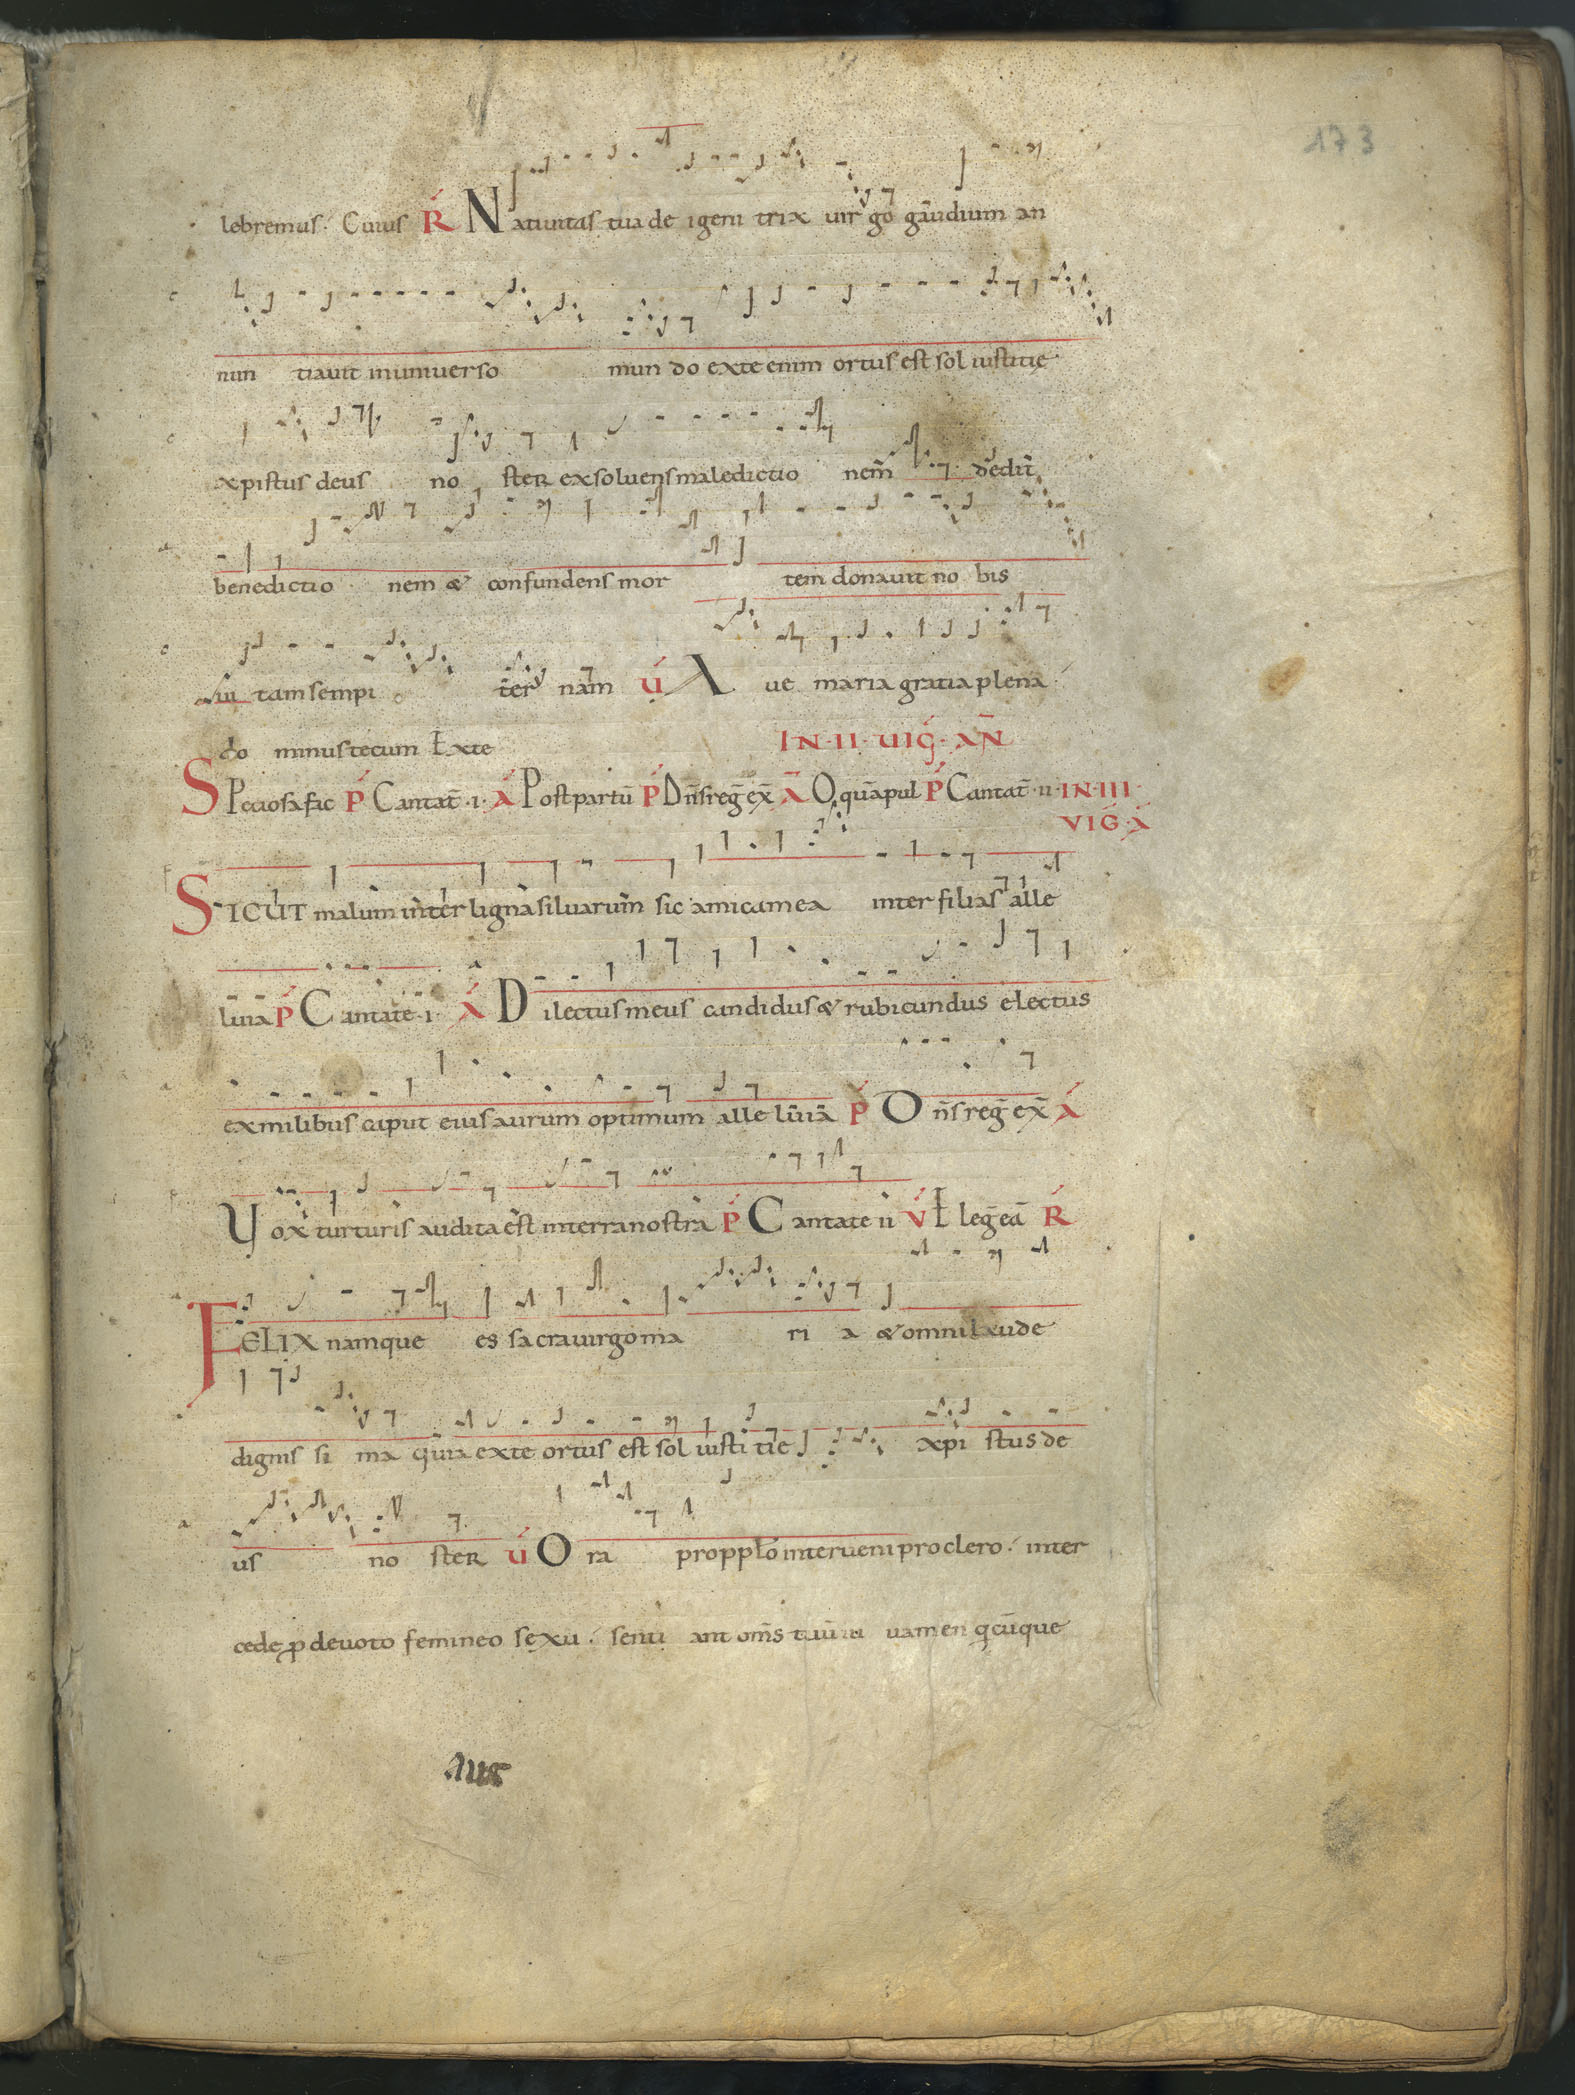 173
lebremus. Cuius R̃ Natiuitas tua de igeni trix uir go gaudium an
nun tiauit inuniuerso mun do exte enim ortus est sol iustitię
xpistus deus no ster exsoluens maledictio nem̄ dedit
benedictio nem & confundens mor tem donauit no bis
uitam sempi ter nam ú A ue maria gratia plena
do minus tecum Exte IN·II·UIG̃·AÑ
SPeciosa fac P̃ Cantat̃·i· Ã Post partū P̃ Dñs reg̃ ex̃ Ã O quā pul P̃ Cantat̃·ii· IN·III·
VIG̃·Ã
SICUT malum inter ligna siluarum sic amica mea inter filias alle
luiā P̃ Cantate·i· Ã Dilectus meus candidus & rubicundus electus
exmilibus caput eius aurum optimum alle luiā P̃ Dñs reg̃ ex̃ Ã
Vox turturis audita est interra nostra P̃ Cantate ii V́ Et leg̃ eā R̃
FELIX namque es sacra uirgo ma ri a & omni laude
dignis si ma quia exte ortus est sol iusti tie xpi stus de
us no ster ú O ra pro pplo interueni pro clero. inter
cede p deuoto femineo sexu. senti ant om̄s tuū iu uamen qcūque
aug